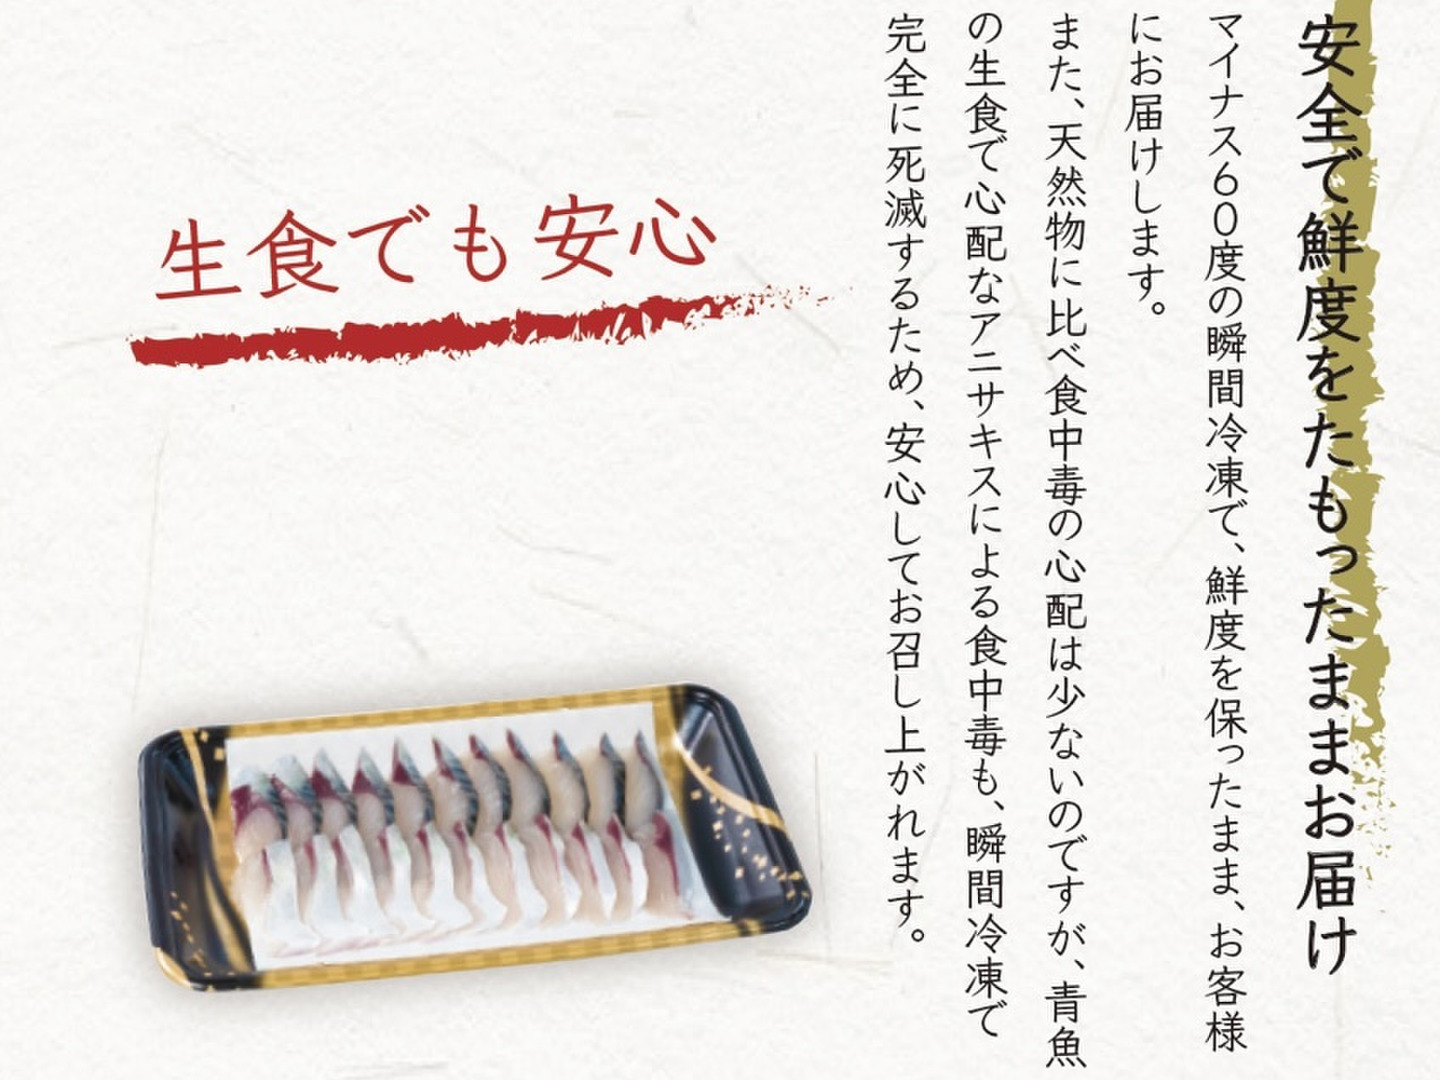 安全で鮮度をたもったままお届け
マイナス60度の瞬間冷凍で、鮮度を保ったまま、お客様
にお届けします。
また、天然物に比べ食中毒の心配は少ないのですが、青魚
の生食で心配なアニサキスによる食中毒も、瞬間冷凍で
完全に死滅するため、安心してお召し上がれます。
生食でも安心